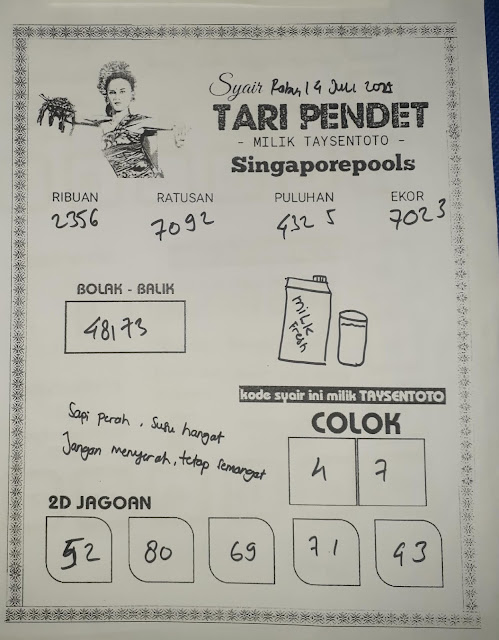 Syair Rabu, 14 Juli 2021
TARI PENDET
- MILIK TAYSENTOTO -
Singaporepools
RIBUAN RATUSAN PULUHAN EKOR
2356 7092 4325 7023
BOLAK - BALIK
48173
MILK
Fresh
kode syair ini milik TAYSENTOTO
Sapi perah, susu hangat
Jangan menyerah, tetap semangat
COLOK
4 7
2D JAGOAN
52 80 69 71 43